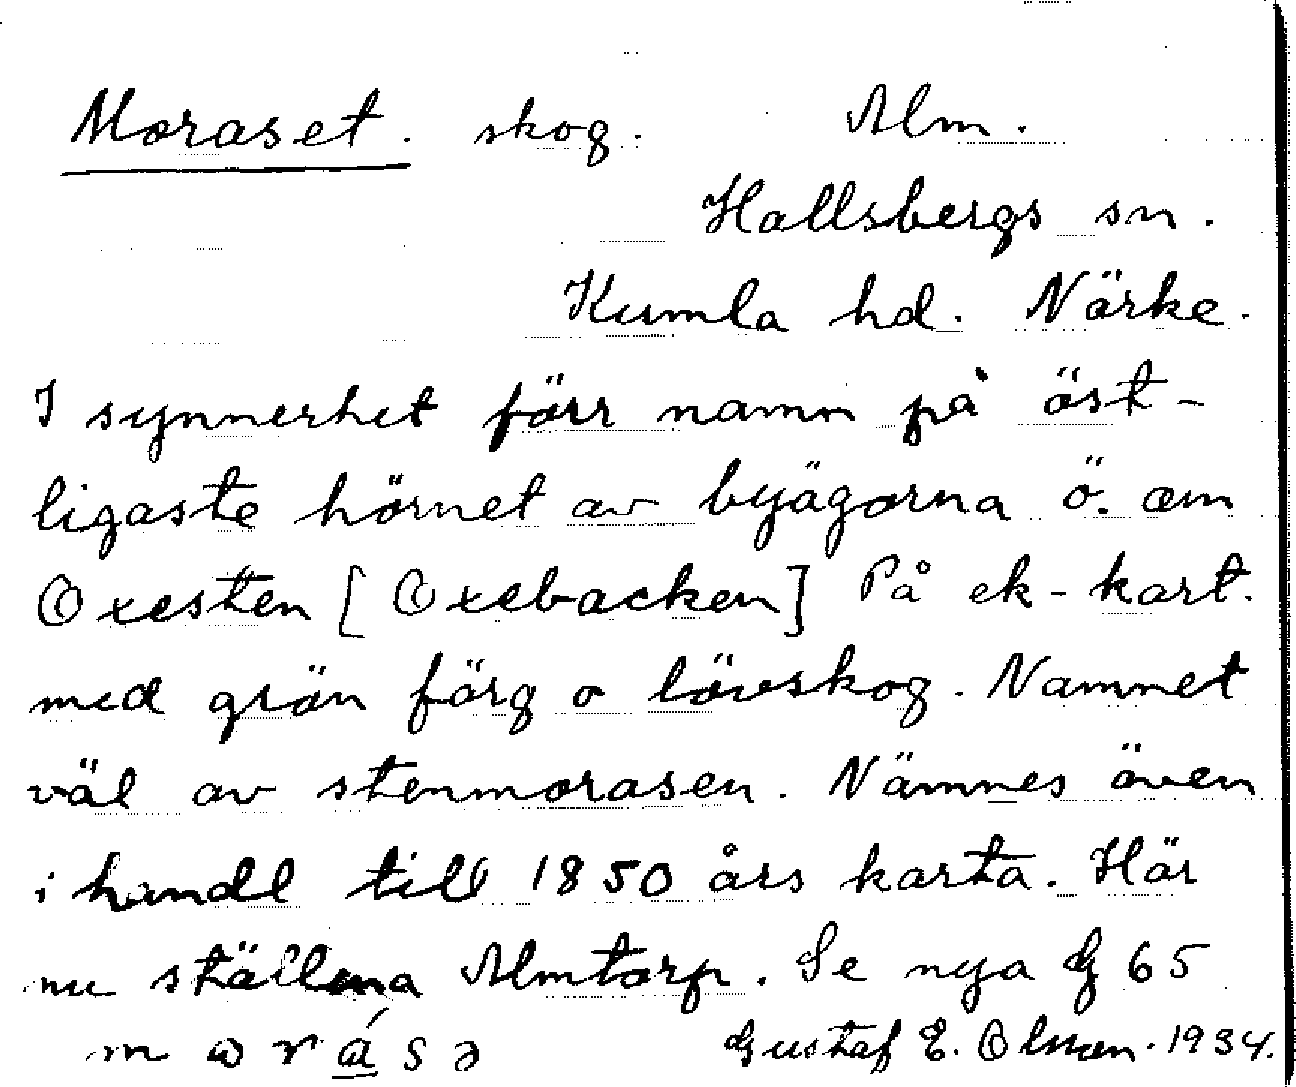 Moraset. skog. Alm.
Hallsbergs sn.
Kumla hd. Närke.
I synnerhet förr namn på öst-
ligaste hörnet av byägorna ö. om
Oxesten [Oxebacken] På ek-kart.
med grön färg o lövskog. Namnet
väl av stenmorasen. Nämnes även
i handl till 1850 års karta. Här
nu ställena Almtorp. Se nya G 65
Gustaf E. Olsson. 1934.